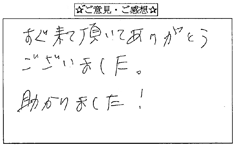 ☆ご意見・ご感想☆
すぐ来て頂いてありがとう
ございました。
助かりました！